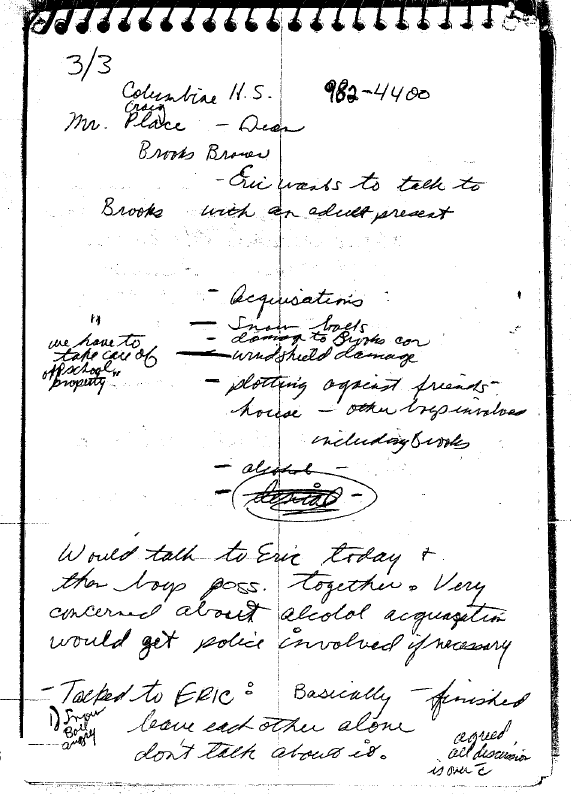 3/3
Columbine H.S. 982-4400
Craig
Mr. Place - Dean
Brooks Brown
- Eric wants to talk to
Brooks with an adult present
- Acquisations
— Snow balls
- damage to Brooks car
— windshield damage
"we have to
take care of
off school
property"
- plotting against friends
house - other boys involved
including Brooks
- alcohol -
- denial -
Would talk to Eric today +
then boys poss. together. Very
concerned about alcolol acquasation
would get police involved if necessary
- Talked to ERIC: Basically - finished
1) Snow
Ball
angry
leave each other alone
don't talk about it.
agreed
all discussion
is over